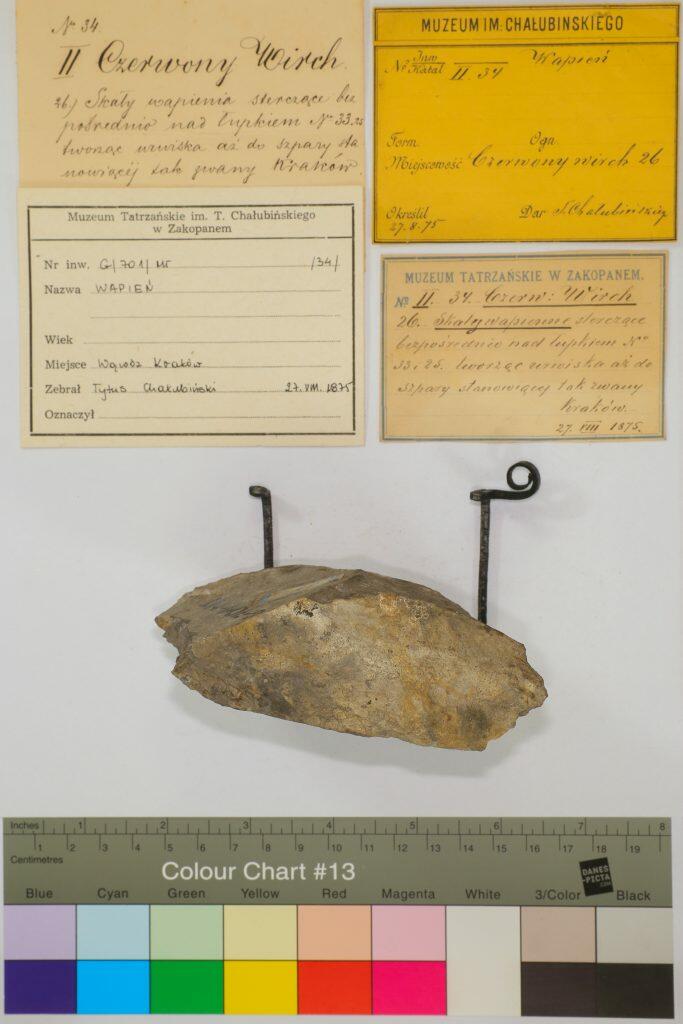 Nº 34.
II Czerwony Wirch.
26) Skały wapienia sterczące bez
pośrednio nad łupkiem Nº 33,25
tworząc urwiska aż do szpary sta
nowiącej tak zwany Kraków.
MUZEUM IM. CHAŁUBINSKIEGO
Nº Inw/Katal II. 34 Wapień
Form. Ogn.
Miejscowość Czerwony wirch 26
Określił Dar T. Chałubińskiego
27.8.75
Muzeum Tatrzańskie im. T. Chałubińskiego
w Zakopanem
Nr inw. G/701/MT /34/
Nazwa WAPIEŃ
Wiek
Miejsce Wąwóz Kraków
Zebrał Tytus Chałubiński 27.VIII.1875
Oznaczył
MUZEUM TATRZAŃSKIE W ZAKOPANEM.
Nº II. 34. Czerw: Wirch
26. Skały wapienne sterczące
bezpośrednio nad łupkiem Nº
33 i 25. tworząc urwiska aż do
szpary stanowiącej tak zwany
Kraków.
27. VIII 1875.
Inches 1 2 3 4 5 6 7 8
1 2 3 4 5 6 7 8 9 10 11 12 13 14 15 16 17 18 19
Centimetres
Colour Chart #13
DANES-PICTA
.COM
Blue Cyan Green Yellow Red Magenta White 3/Color Black